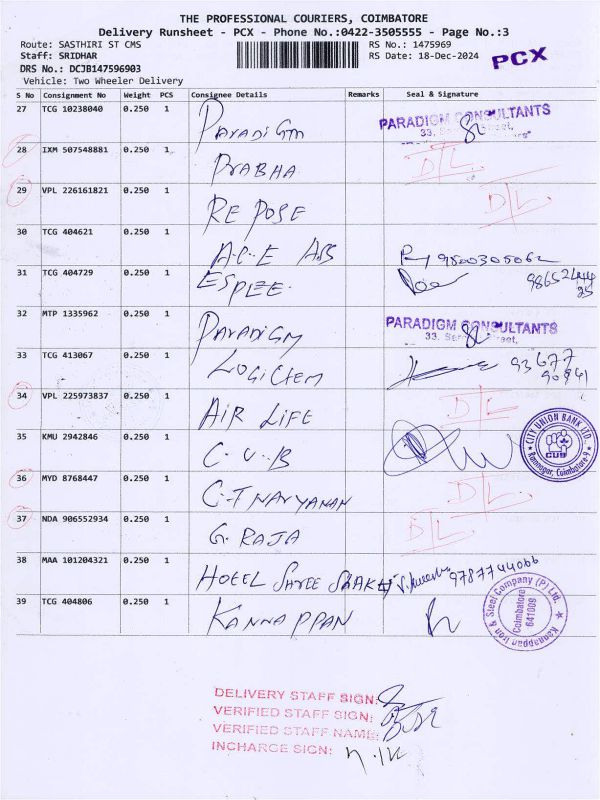 THE PROFESSIONAL COURIERS, COIMBATORE
Delivery Runsheet - PCX - Phone No.:0422-3505555 - Page No.:3
Route: SASTHIRI ST CMS RS No.: 1475969
Staff: SRIDHAR RS Date: 18-Dec-2024 PCX
DRS No.: DCJB147596903
Vehicle: Two Wheeler Delivery
S No Consignment No Weight PCS Consignee Details Remarks Seal & Signature
27 TCG 10238040 0.250 1 PARADIGM PARADIGM CONSULTANTS
33,
28 IXM 507548881 0.250 1 PRABHA DTL
29 VPL 226161821 0.250 1 REPOSE DTL
30 TCG 404621 0.250 1 A.C.E ABS 9500305062
31 TCG 404729 0.250 1 ESPEE
32 MTP 1335962 0.250 1 PARADIGM PARADIGM CONSULTANTS
33,
33 TCG 413067 0.250 1 LOGICHEM 93677
34 VPL 225973837 0.250 1 AIR LIFE DTL
35 KMU 2942846 0.250 1 C.U.B CITY UNION BANK LTD. Ramnagar, Coimbatore-9 CUB
36 MYD 8768447 0.250 1 C.T NARYANAN DTL
37 NDA 906552934 0.250 1 G. RAJA DTL
38 MAA 101204321 0.250 1 HOTEL SHREE SHAKTI 9787744066
39 TCG 404806 0.250 1 KANNAPPAN Kannappan Iron & Steel Company (P) Ltd. Coimbatore 641009
DELIVERY STAFF SIGN:
VERIFIED STAFF SIGN:
VERIFIED STAFF NAME:
INCHARGE SIGN: